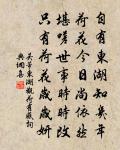 自有東湖知幾年
荷花今日尚依然
堪嗟世事時時改
只有荷花歲歲妍
吳芾東湖觀荷有感